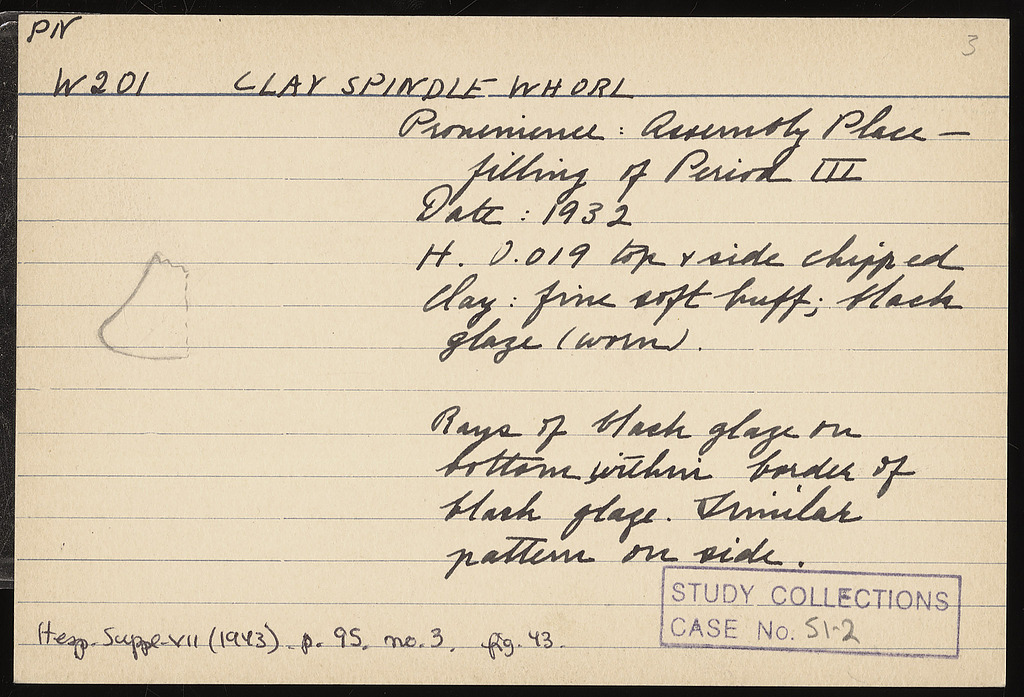 PN
3
W201 CLAY SPINDLE WHORL
Provenience: Assembly Place –
filling of Period III
Date: 1932
H. 0.019 top & side chipped
Clay: fine soft buff; black
glaze (worn).
Rays of black glaze on
bottom within border of
black glaze. Similar
pattern on side.
STUDY COLLECTIONS
CASE No. 51-2
Hesp. Suppl. VII (1943) p. 95, no. 3, fig. 43.